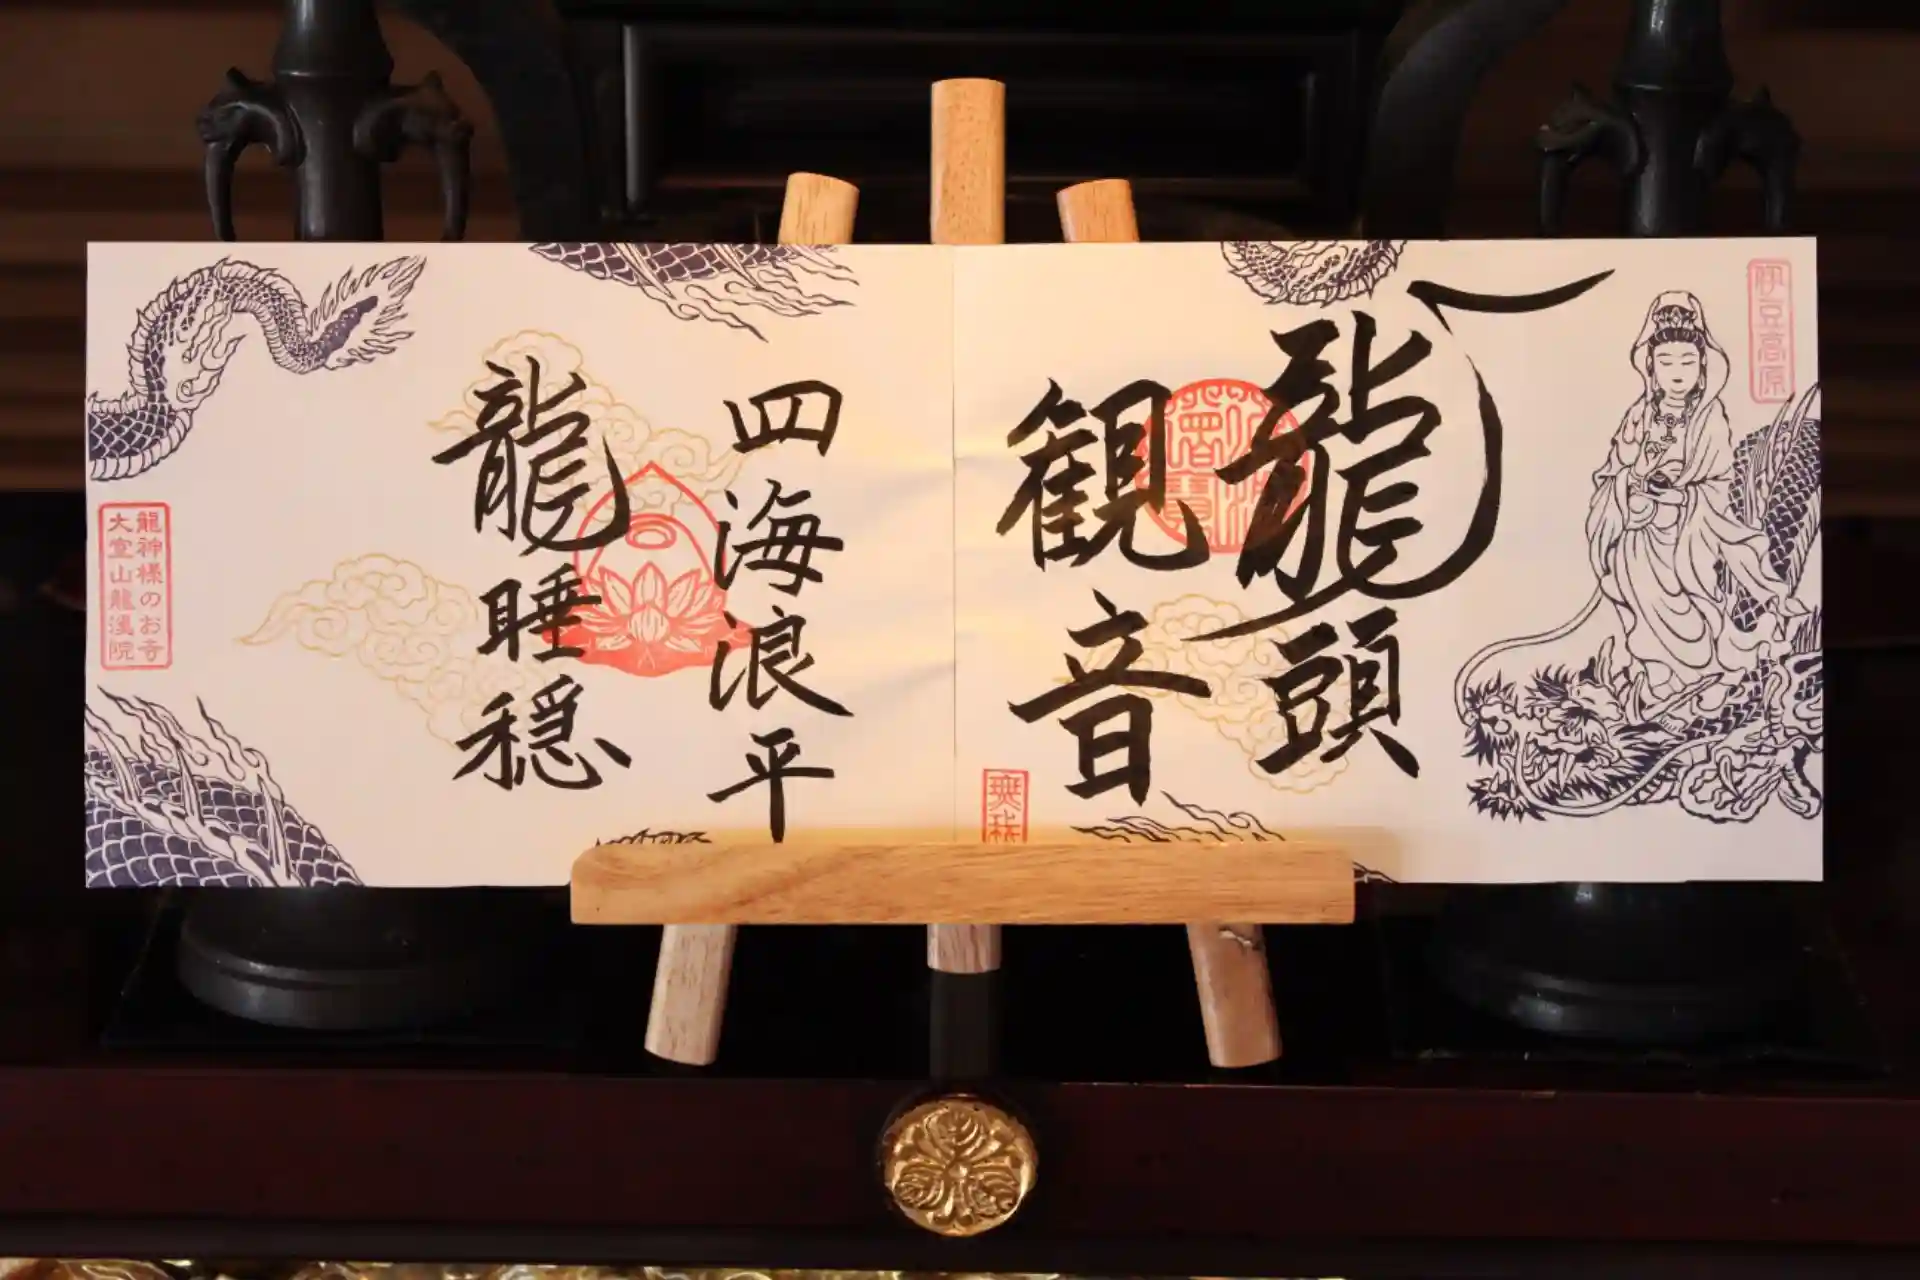 伊豆高原
龍頭
観音
四海浪平
龍睡穏
龍神様のお寺
大室山龍渓院